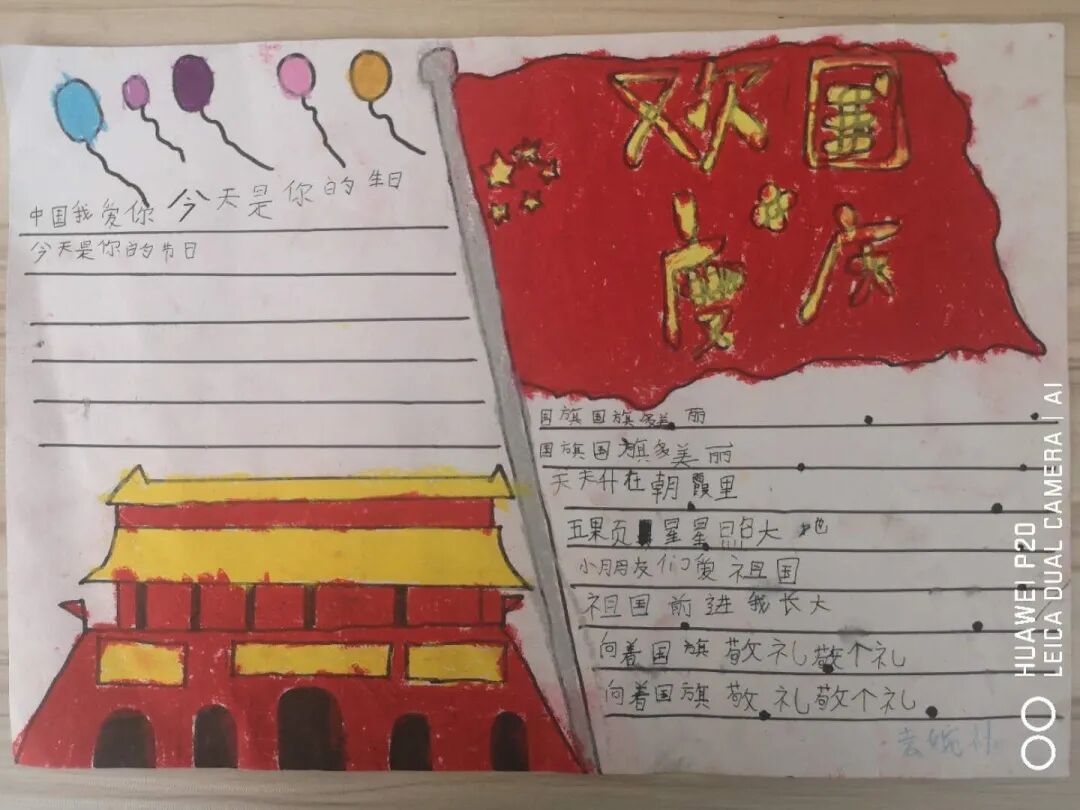 欢国
度庆
中国我爱你今天是你的生日
今天是你的节日
国旗国旗多美丽
国旗国旗多美丽
天天升在朝霞里
五果页星星照大地
小朋友们爱祖国
祖国前进我长大
向着国旗敬礼敬个礼
向着国旗敬礼敬个礼
HUAWEI P20
LEICA DUAL CAMERA | AI